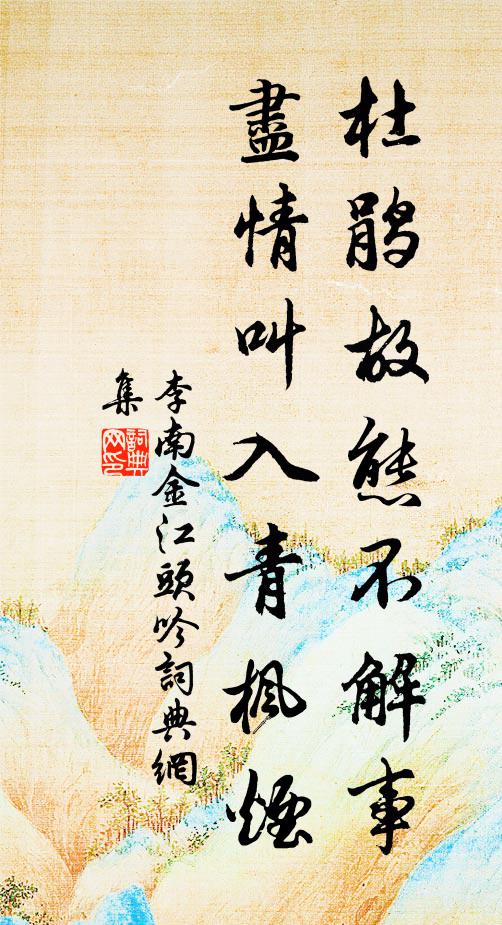 杜鹃故態不解事
盡情叫入青楓煙
李南金江頭吟詞典網
集
詞典
网印